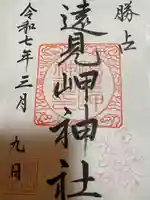 勝占
遠見岬神社
令和七年三月
九日